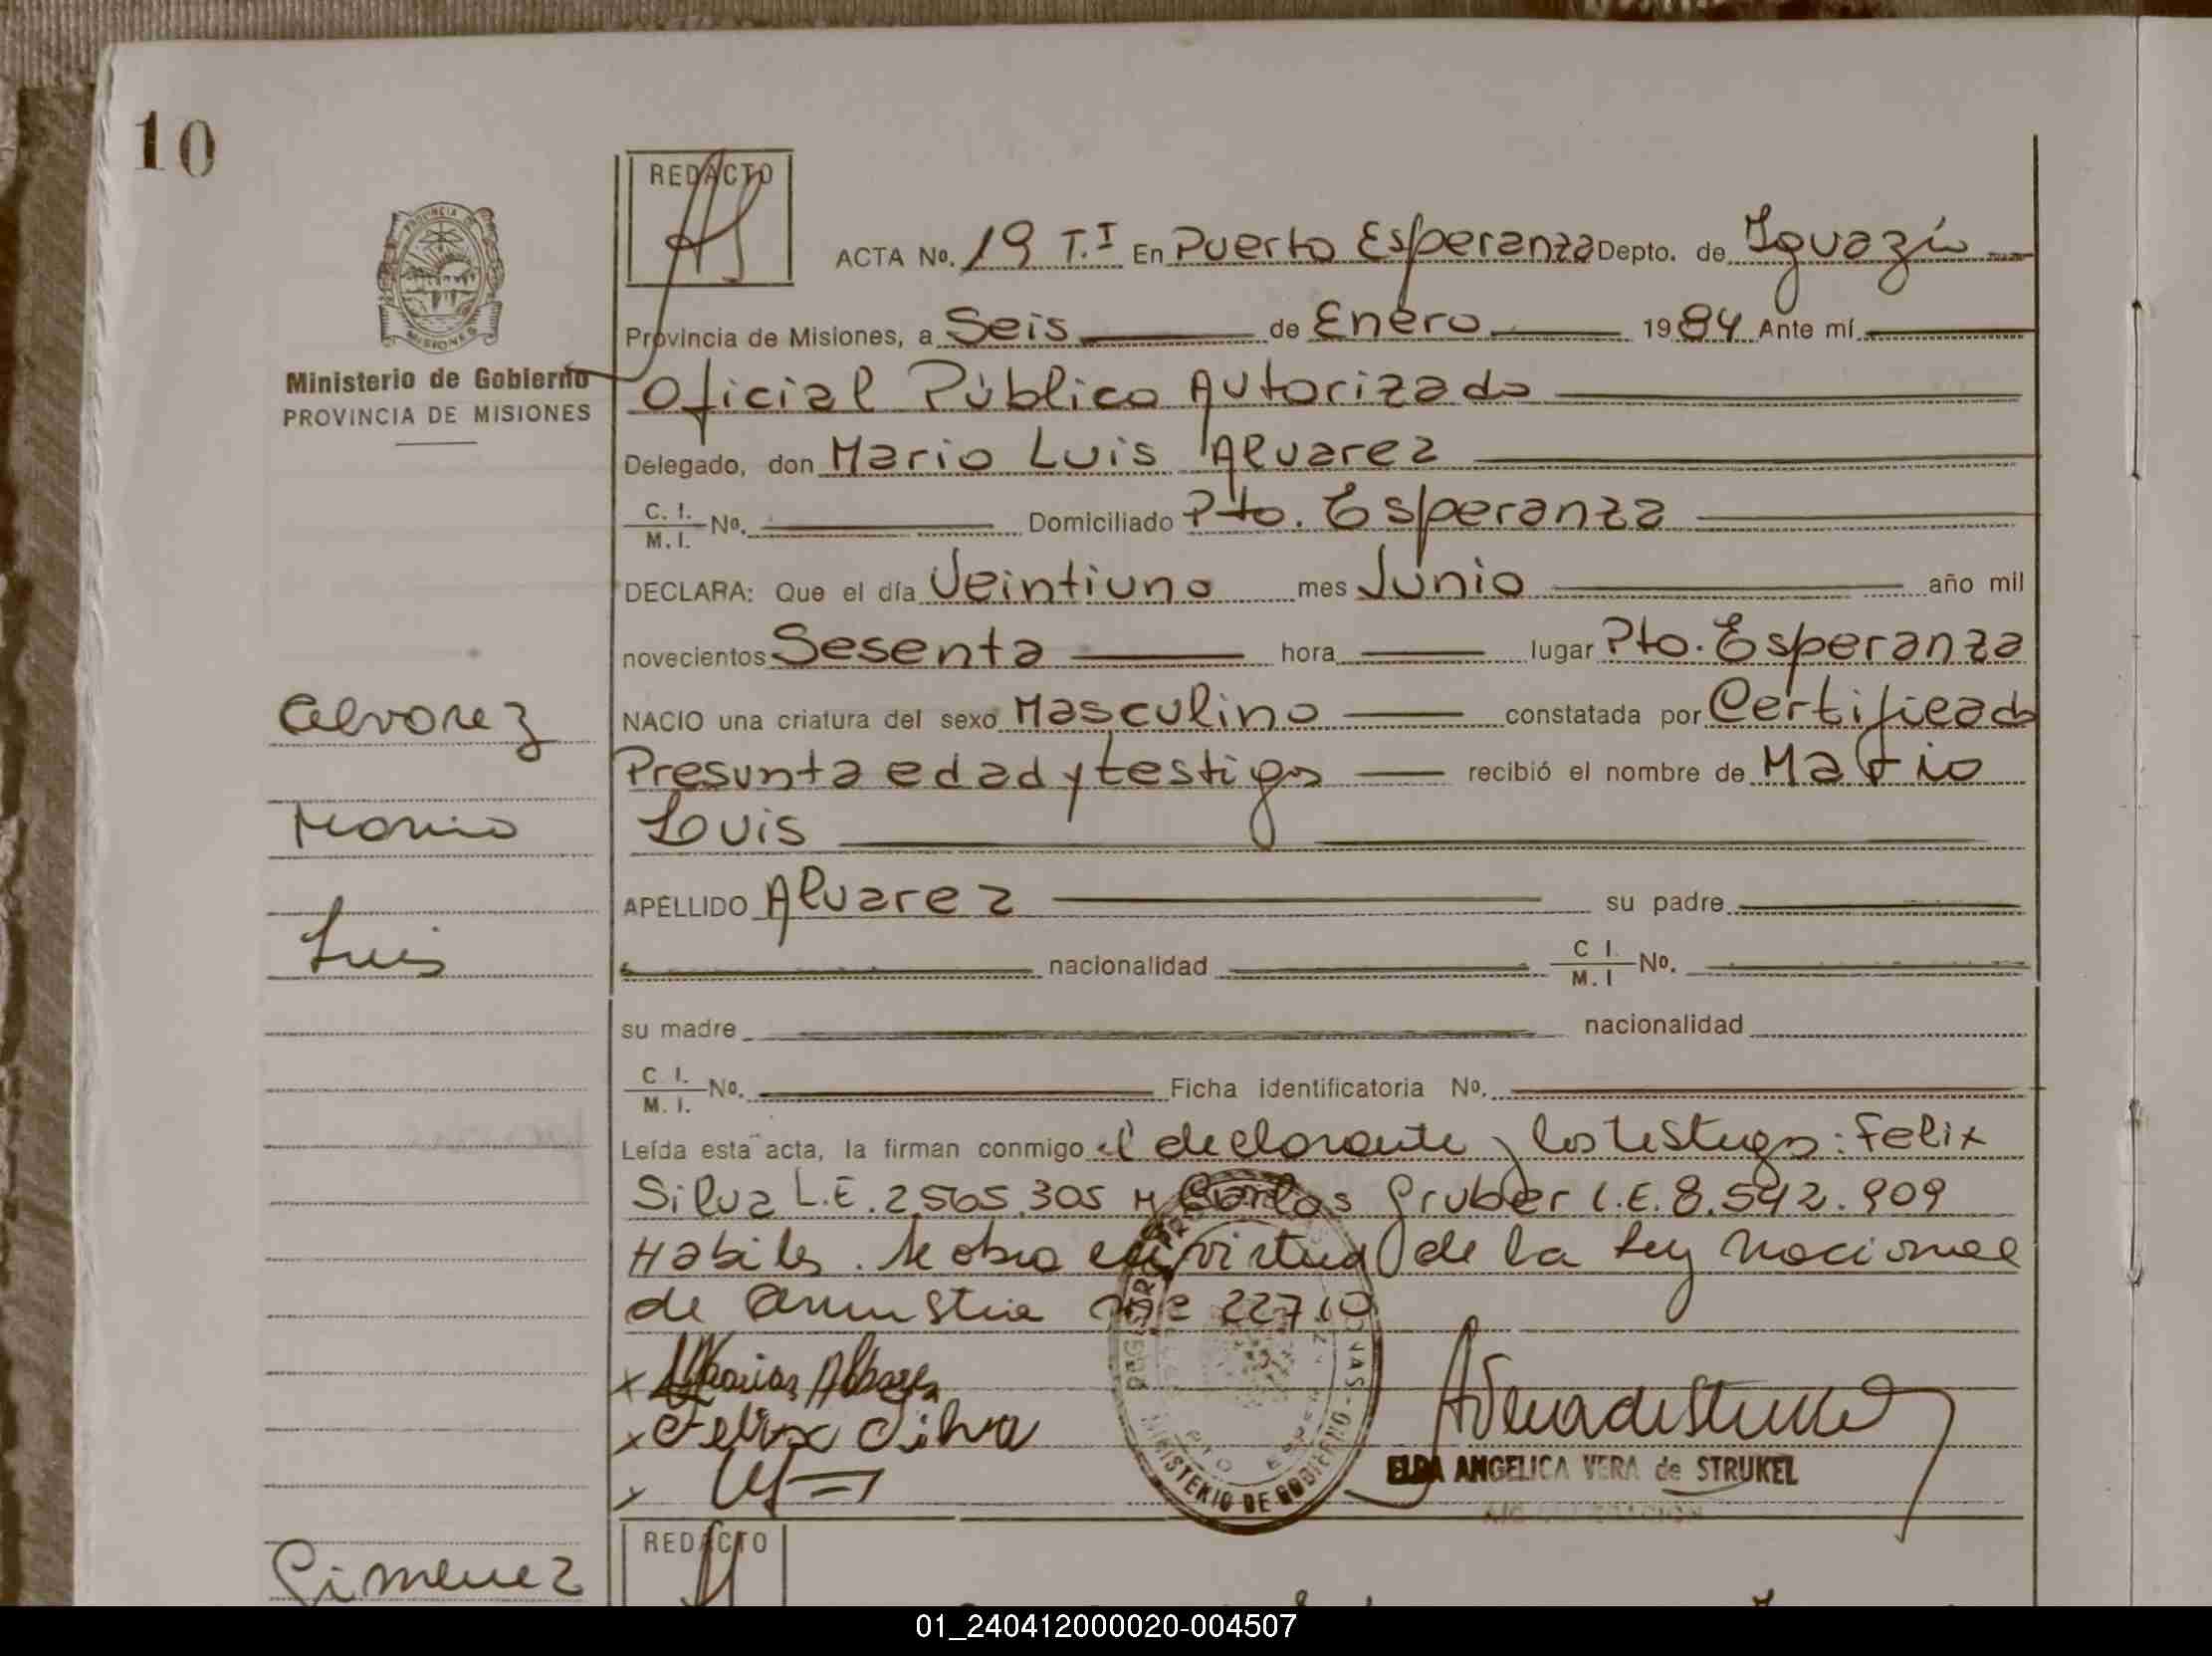 10
REDACTO
PROVINCIA DE
MISIONES
Ministerio de Gobierno
PROVINCIA DE MISIONES
ACTA Nº. 19 T.I En Puerto Esperanza Depto. de Iguazú
Provincia de Misiones, a Seis de Enero 1984 Ante mí
Oficial Público Autorizado
Delegado, don Mario Luis Alvarez
C. I. M. I. Nº. Domiciliado Pto. Esperanza
DECLARA: Que el día Veintiuno mes Junio año mil
novecientos Sesenta hora lugar Pto. Esperanza
Alvarez
NACIO una criatura del sexo Masculino constatada por Certificado
Presunta edad y testigos recibió el nombre de Mario
Mario
Luis
APELLIDO Alvarez su padre
Luis
nacionalidad C I. M. I Nº.
su madre nacionalidad
C I. M. I. Nº. Ficha identificatoria Nº.
Leída esta acta, la firman conmigo el declarante y los testigos: Felix
Silva L.E. 2.565.305 y Carlos Gruber L.E. 8.592.909
Habiles. Se obra en virtud de la Ley Nacional
de Amnistia 22710
x
x Felix Silva
x
MINISTERIO DE GOBIERNO
ELDA ANGELICA VERA de STRUKEL
REDACTO
Gimenez
01_240412000020-004507